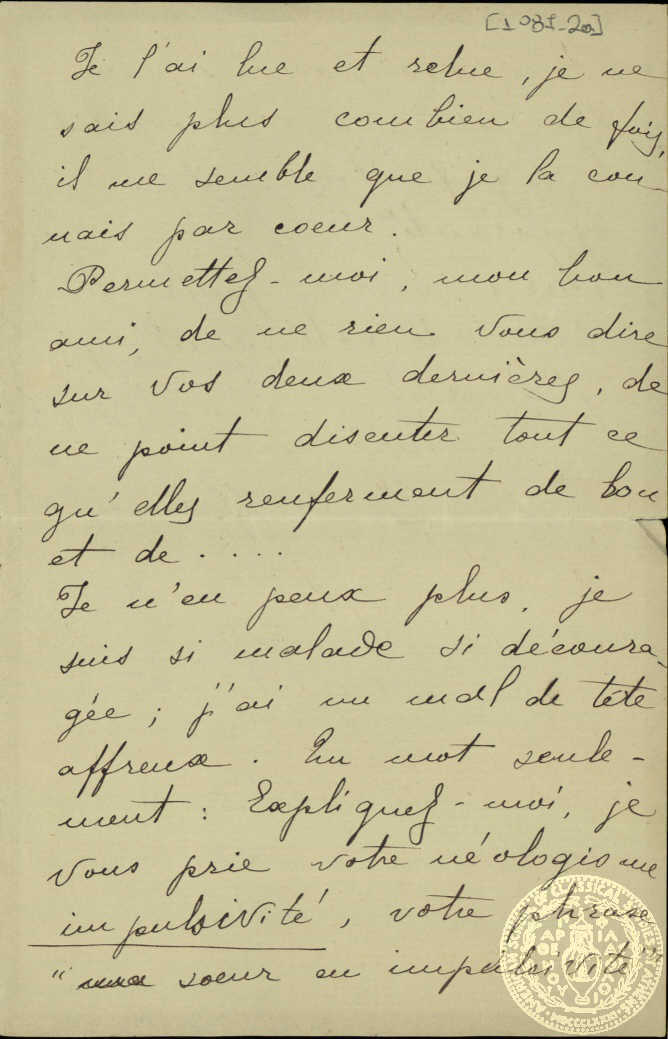 [1087-20]
Je l'ai lue et relue, je ne
sais plus combien de fois,
il me semble que je la con
nais par coeur.
Permettez-moi, mon bon
ami, de ne rien vous dire
sur vos deux dernières, de
ne point discuter tout ce
qu'elles renferment de bon
et de .....
Je n'en peux plus, je
suis si malade si découra-
gée ; j'ai un mal de tête
affreux. Un mot seule-
ment : Expliquez-moi, je
vous prie votre néologisme
impulsivité, votre phrase
"ma soeur en impulsivité"